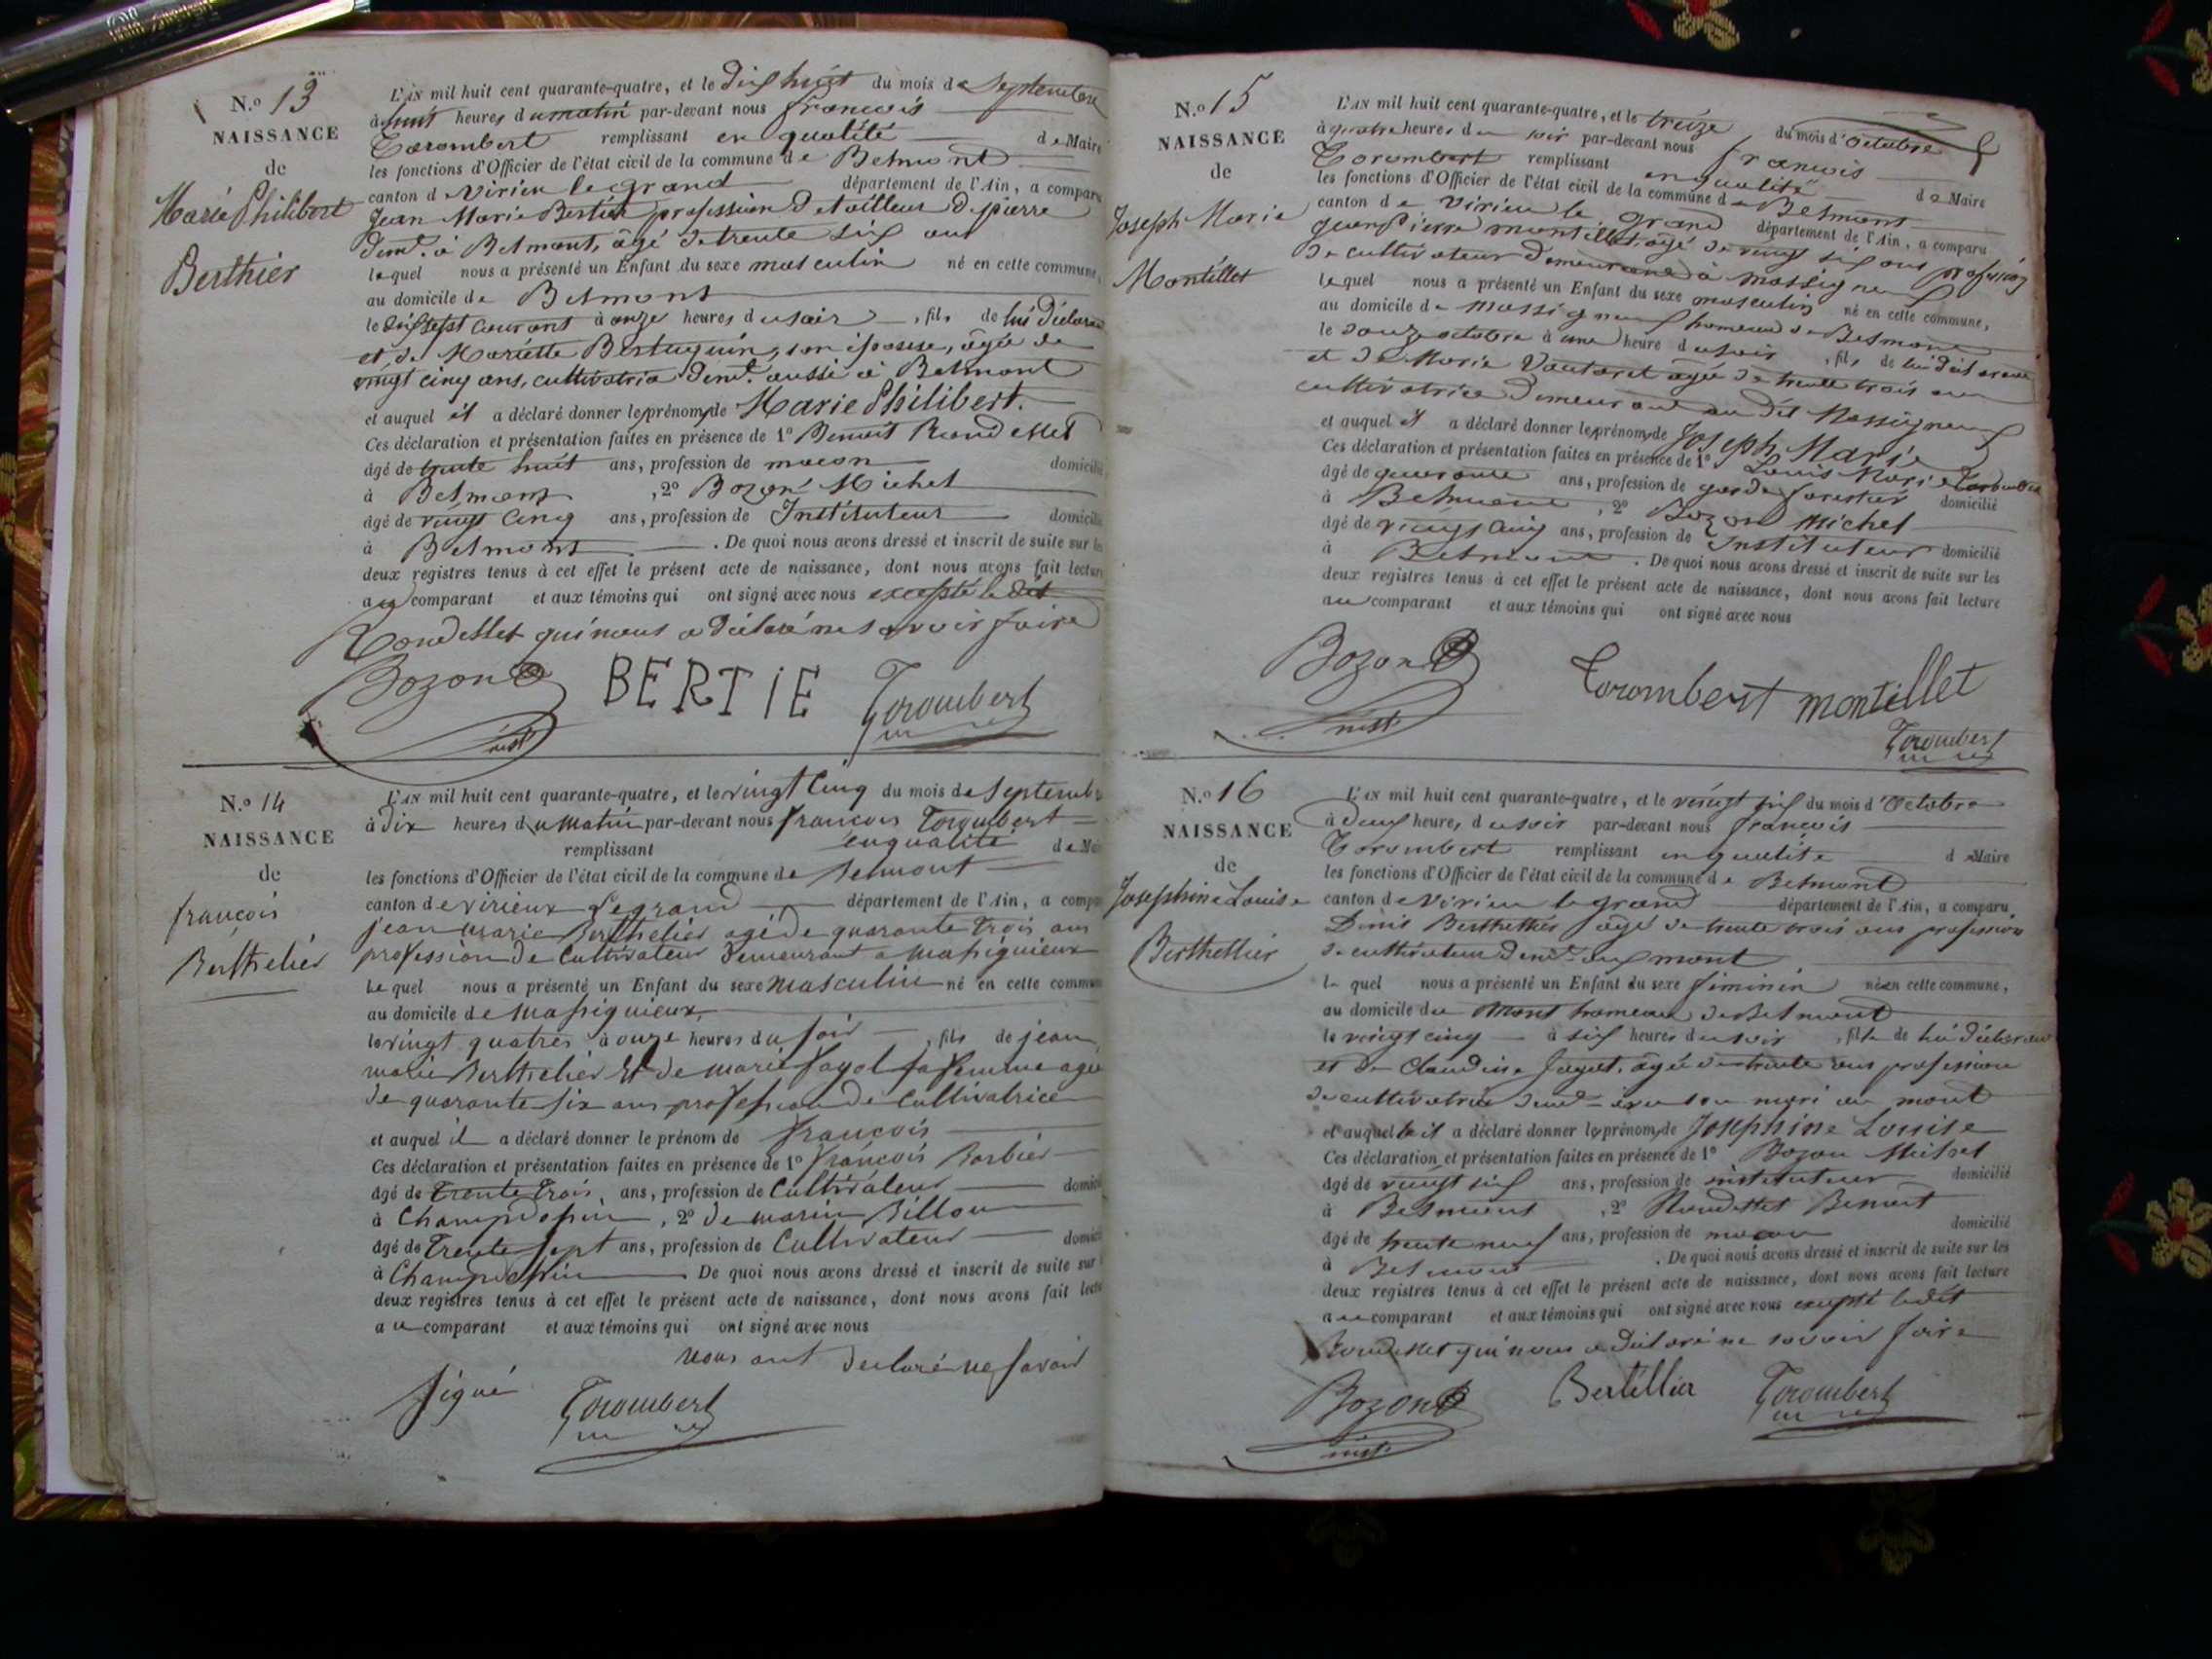 N.º 13
NAISSANCE
de
Marie Philibert
Berthier
L'AN mil huit cent quarante-quatre, et le dix huit du mois de Septembre
à huit heures du matin par-devant nous françois
Torombert remplissant en qualité de Maire
les fonctions d'Officier de l'état civil de la commune de Belmont
canton de Virieu le grand département de l'Ain, a comparu
Jean Marie Bertier profession de tailleur de pierre
demt. à Belmont, âgé de trente six ans
lequel nous a présenté un Enfant du sexe masculin né en cette commune,
au domicile de Belmont
le dix sept courant à onze heures du soir, fils de lui déclarant
et de Mariette Bertuquin, son épouse, âgée de
vingt cinq ans, cultivatrice demt. aussi à Belmont
et auquel il a déclaré donner les prénoms de Marie Philibert.
Ces déclaration et présentation faites en présence de 1º Benoit Rondellet
âgé de trente huit ans, profession de macon domicilié
à Belmont, 2º Bozon Michel
âgé de vingt cinq ans, profession de Instituteur domicilié
à Belmont. De quoi nous avons dressé et inscrit de suite sur les
deux registres tenus à cet effet le présent acte de naissance, dont nous avons fait lecture
au comparant et aux témoins qui ont signé avec nous excepté le dit
Rondellet qui nous a déclaré ne savoir faire
Bozon BERTIE Torombert
inst.
N.º 14
NAISSANCE
de
françois
Berthelier
L'AN mil huit cent quarante-quatre, et le vingt Cinq du mois de Septembre
à dix heures du Matin par-devant nous françois Torombert
remplissant en qualité de Maire
les fonctions d'Officier de l'état civil de la commune de Belmont
canton de virieux Le grand département de l'Ain, a comparu
jean marie Berthelier agé de quarante trois ans
profession de Cultivateur demeurant a Massignieux
lequel nous a présenté un Enfant du sexe Masculin né en cette commune
au domicile de Massignieux,
le vingt quatres à onze heures du soir, fils de jean
marie Berthelier Et de marie fayol sa femme agée
de quarante six ans profession de Cultivatrice
et auquel il a déclaré donner le prénom de françois
Ces déclaration et présentation faites en présence de 1º françois Barbier
âgé de Trente Trois ans, profession de Cultivateur domicilié
à Champdossin, 2º de marin Billon
âgé de Trente sept ans, profession de Cultivateur domicilié
à Champdossin De quoi nous avons dressé et inscrit de suite sur
deux registres tenus à cet effet le présent acte de naissance, dont nous avons fait lecture
au comparant et aux témoins qui ont signé avec nous
nous ont declaré ne savoir
signé Torombert
N.º 15
NAISSANCE
de
Joseph Marie
Montillet
L'AN mil huit cent quarante-quatre, et le treize du mois d'Octobre
à quatre heures du soir par-devant nous françois
Torombert remplissant en qualité de Maire
les fonctions d'Officier de l'état civil de la commune de Belmont
canton de Virieu le grand département de l'Ain, a comparu
Pierre montillet âgé de vingt six ans profession
de cultivateur demeurant à Massigneu
lequel nous a présenté un Enfant du sexe masculin né en cette commune,
au domicile de Massigneu hameau de Belmont
le douze octobre à une heure du soir, fils de lui déclarant
et de Marie Vautaret âgée de trente trois ans
cultivatrice demeurant au dit Massigneu
et auquel il a déclaré donner les prénoms de Joseph Marie
Ces déclaration et présentation faites en présence de 1º Louis Marie Torombert
âgé de quarante ans, profession de garde forestier domicilié
à Belmont, 2º Bozon Michel
âgé de vingt cinq ans, profession de Instituteur domicilié
à Belmont. De quoi nous avons dressé et inscrit de suite sur les
deux registres tenus à cet effet le présent acte de naissance, dont nous avons fait lecture
au comparant et aux témoins qui ont signé avec nous
Bozon Torombert montillet
inst.
Torombert
N.º 16
NAISSANCE
de
Josephine Louise
Berthellier
L'AN mil huit cent quarante-quatre, et le vingt six du mois d'Octobre
à deux heures du soir par-devant nous françois
Torombert remplissant en qualité de Maire
les fonctions d'Officier de l'état civil de la commune de Belmont
canton de Virieu le grand département de l'Ain, a comparu
Denis Berthellier âgé de trente trois ans profession
de cultivateur demt. au mont
lequel nous a présenté un Enfant du sexe féminin né en cette commune,
au domicile du Mont hameau de Belmont
le vingt cinq à six heures du soir, fille de lui déclarant
et de Claudine fayet. âgée de trente ans profession
de cultivatrice demt. avec son mari au mont
et auquelle il a déclaré donner les prénoms de Josephine Louise
Ces déclaration et présentation faites en présence de 1º Bozon Michel
âgé de vingt six ans, profession de instituteur domicilié
à Belmont, 2º Rondellet Benoit
âgé de trente neuf ans, profession de macon domicilié
à Belmont. De quoi nous avons dressé et inscrit de suite sur les
deux registres tenus à cet effet le présent acte de naissance, dont nous avons fait lecture
au comparant et aux témoins qui ont signé avec nous excepté ledit
Rondellet qui nous a déclaré ne savoir faire
Bozon Bertellier Torombert
inst.